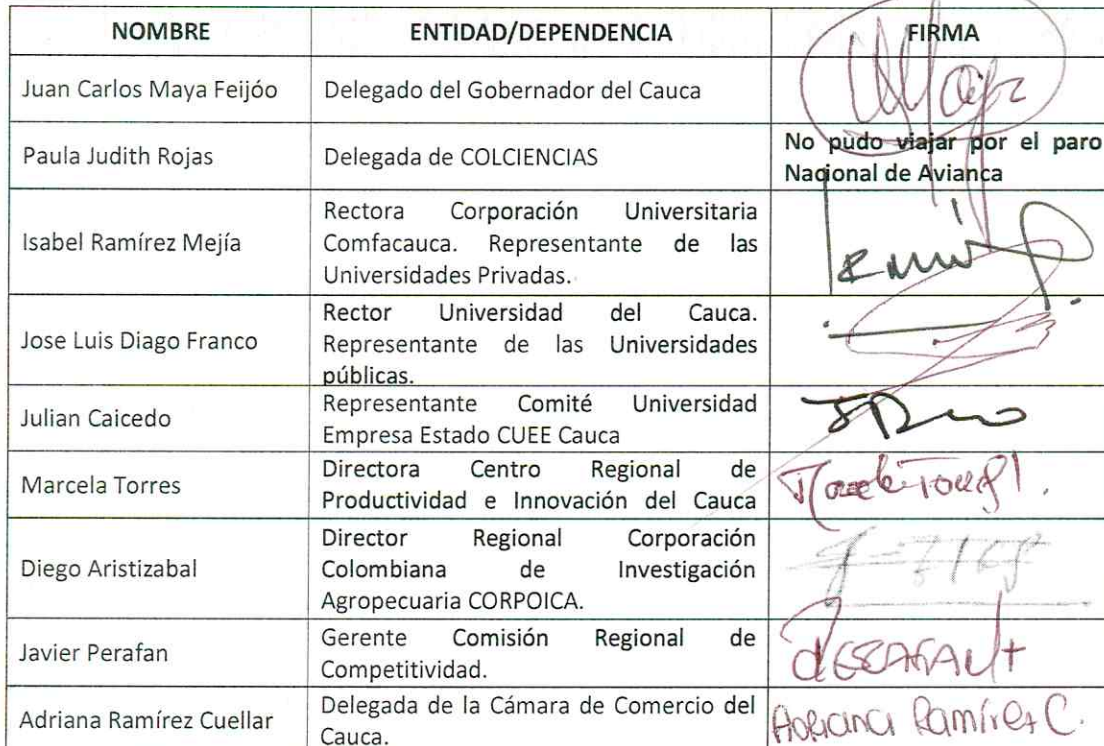 NOMBRE ENTIDAD/DEPENDENCIA FIRMA
Juan Carlos Maya Feijóo Delegado del Gobernador del Cauca
Paula Judith Rojas Delegada de COLCIENCIAS No pudo viajar por el paro
Nacional de Avianca
Isabel Ramírez Mejía Rectora Corporación Universitaria
Comfacauca. Representante de las
Universidades Privadas.
Jose Luis Diago Franco Rector Universidad del Cauca.
Representante de las Universidades
públicas.
Julian Caicedo Representante Comité Universidad
Empresa Estado CUEE Cauca
Marcela Torres Directora Centro Regional de
Productividad e Innovación del Cauca
Diego Aristizabal Director Regional Corporación
Colombiana de Investigación
Agropecuaria CORPOICA.
Javier Perafan Gerente Comisión Regional de
Competitividad.
Adriana Ramírez Cuellar Delegada de la Cámara de Comercio del
Cauca.
Adriana Ramírez C.